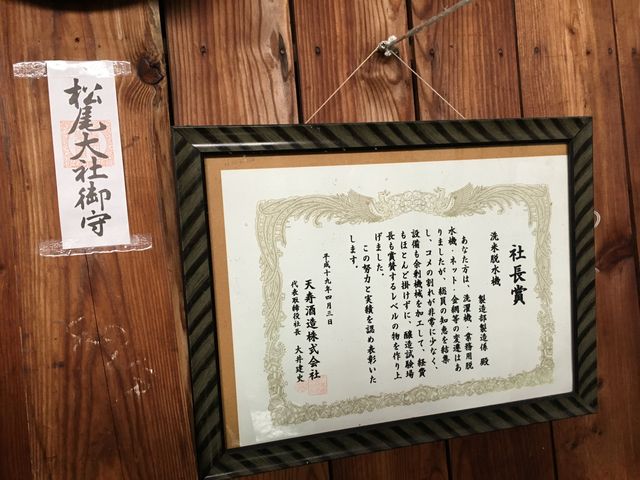 松尾大社御守
社長賞
洗米脱水機
製造部製造係 殿
あなた方は、洗濯機・業務用脱
水機・ネット・金網等の変遷はあ
りましたが、総員の知恵を結集
し、コメの割れが非常に少なく、
設備も余剰機械を加工して、経費
もほとんど掛けずに、醸造試験場
長も賞賛するレベルの物を作り上
げました。
この努力と実績を認め表彰いた
します。
平成十九年四月三日
天寿酒造株式会社
代表取締役社長 大井建史